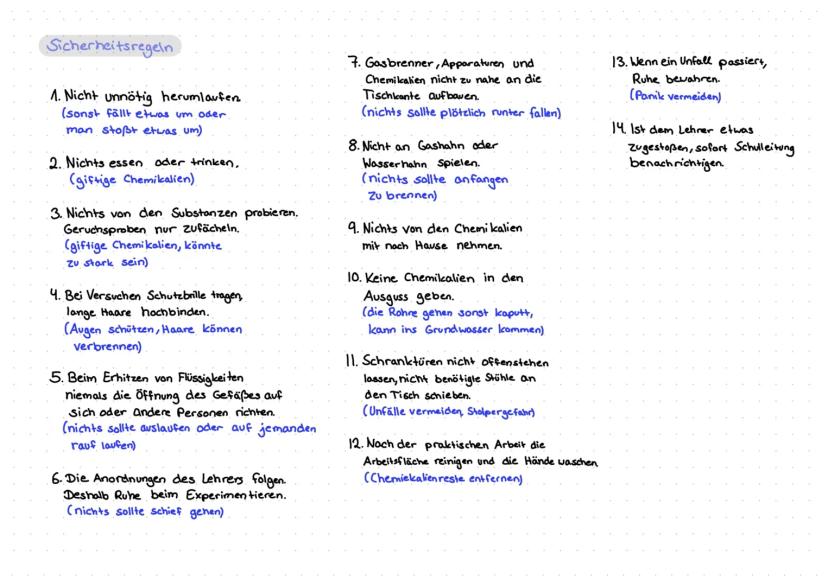 Sicherheitsregeln
1. Nicht unnötig herumlaufen
(sonst fällt etwas um oder
man stoßt etwas um)
2. Nichts essen oder trinken.
(giftige Chemikalien)
3. Nichts von den Substanzen probieren.
Geruchsproben nur zufächeln.
(giftige Chemikalien, könnte
zu stark sein)
4. Bei Versuchen Schutzbrille tragen,
lange Haare hochbinden.
(Augen schützen, Haare können
verbrennen)
5. Beim Erhitzen von Flüssigkeiten
niemals die Öffnung des Gefäßes auf
sich oder andere Personen richten.
(nichts sollte auslaufen oder auf jemanden
rauf laufen)
6. Die Anordnungen des Lehrers folgen.
Deshalb Ruhe beim Experimentieren.
(nichts sollte schief gehen)
7. Gasbrenner, Apparaturen und
Chemikalien nicht zu nahe an die
Tischkante aufbauen.
(nichts sollte plötzlich runter fallen)
8. Nicht an Gashahn oder
Wasserhahn spielen.
(nichts sollte anfangen
zu brennen)
9. Nichts von den Chemikalien
mit nach Hause nehmen.
10. Keine Chemikalien in den
Ausguss geben.
(die Rohre gehen sonst kaputt,
kann ins Grundwasser kommen)
11. Schranktüren nicht offenstehen
lassen, nicht benötigte Stühle an
den Tisch schieben.
(Unfälle vermeiden, Stolpergefahr)
12. Nach der praktischen Arbeit die
Arbeitsfläche reinigen und die Hände waschen
(Chemiekalienreste entfernen)
13. Wenn ein Unfall passiert,
Ruhe bewahren.
(Panik vermeiden)
14. Ist dem Lehrer etwas
zugestoßen, sofort Schulleitung
benachrichtigen.